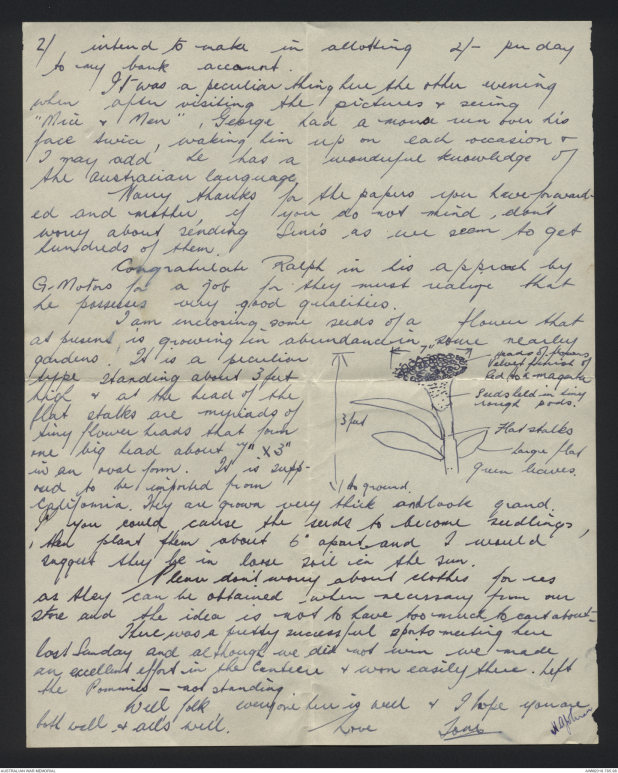 2/ intend to make in allotting 2/- per day
to my bank account.
It was a peculiar thing here the other evening
when after visiting the pictures & seeing
"Mice & Men", George had a mouse run over his
face twice, waking him up on each occasion &
I may add he has a wonderful knowledge of
the australian language
Many thanks for the papers you have forward-
ed and mother, if you do not mind, don't
worry about sending as we seem to get
hundreds of them.
Congratulate Ralph in his approach by
G-Motors for a job for they must realize that
he possesses very good qualities.
I am enclosing some seeds of a flower that
at present is growing in abundance in some nearly
gardens. It is a peculiar
type standing about 3 feet
high & at the head of the
flat stalks are myriads of
tiny flower heads that form
one big head about 7" x 3"
in an oval form. It is supp-
osed to be imported from
California. They are grown very thick and look grand.
If you could cause the seeds to become seedlings,
then plant them about 6" apart and I would
suggest they be in loose soil in the sun.
Please don't worry about clothes for us
as they can be obtained when necessary from our
store and the idea is not to have too much to cart about-
There was a pretty successful sports meeting here
last Sunday and although we did not win we made
an excellent effort in the Canteen & won easily there. Left
the Pommies - not standing.
Well folk everyone here is well & I hope you are
both well & all's well.
Love
7"
masses of flowers
Velvet finish of
red to magenta
Seeds held in tiny
rough pods.
3 feet
Flat stalks
Large flat
green leaves.
to ground.
AUSTRALIAN WAR MEMORIAL